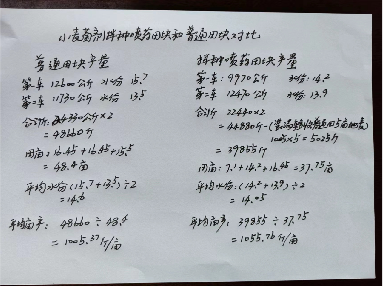 小麦菌剂拌种喷药田块和普通田块对比
普通田块产量
第一车 12600公斤 水份 15.7
第二车: 11730公斤 水份 13.5
合计: 24330公斤×2
= 48660斤
田亩: 16.45 + 16.45 + 15.5
= 48.4亩
平均水份 (15.7 + 13.5) ÷ 2
= 14.6
平均亩产: 48660 ÷ 48.4
= 1005.37斤/亩
拌种喷药田块产量
第一车: 9970公斤 水份: 14.2
第二车: 12470公斤 水份: 13.9
合计 22440 × 2
= 44880斤 - (普通田5亩
1005×5 = 5025斤
= 39855斤
田亩: 7.1 + 14.2 + 16.45 = 37.75亩
平均水份: (14.2 + 13.9) ÷ 2
= 14.05
平均亩产: 39855 ÷ 37.75
= 1055.76斤/亩